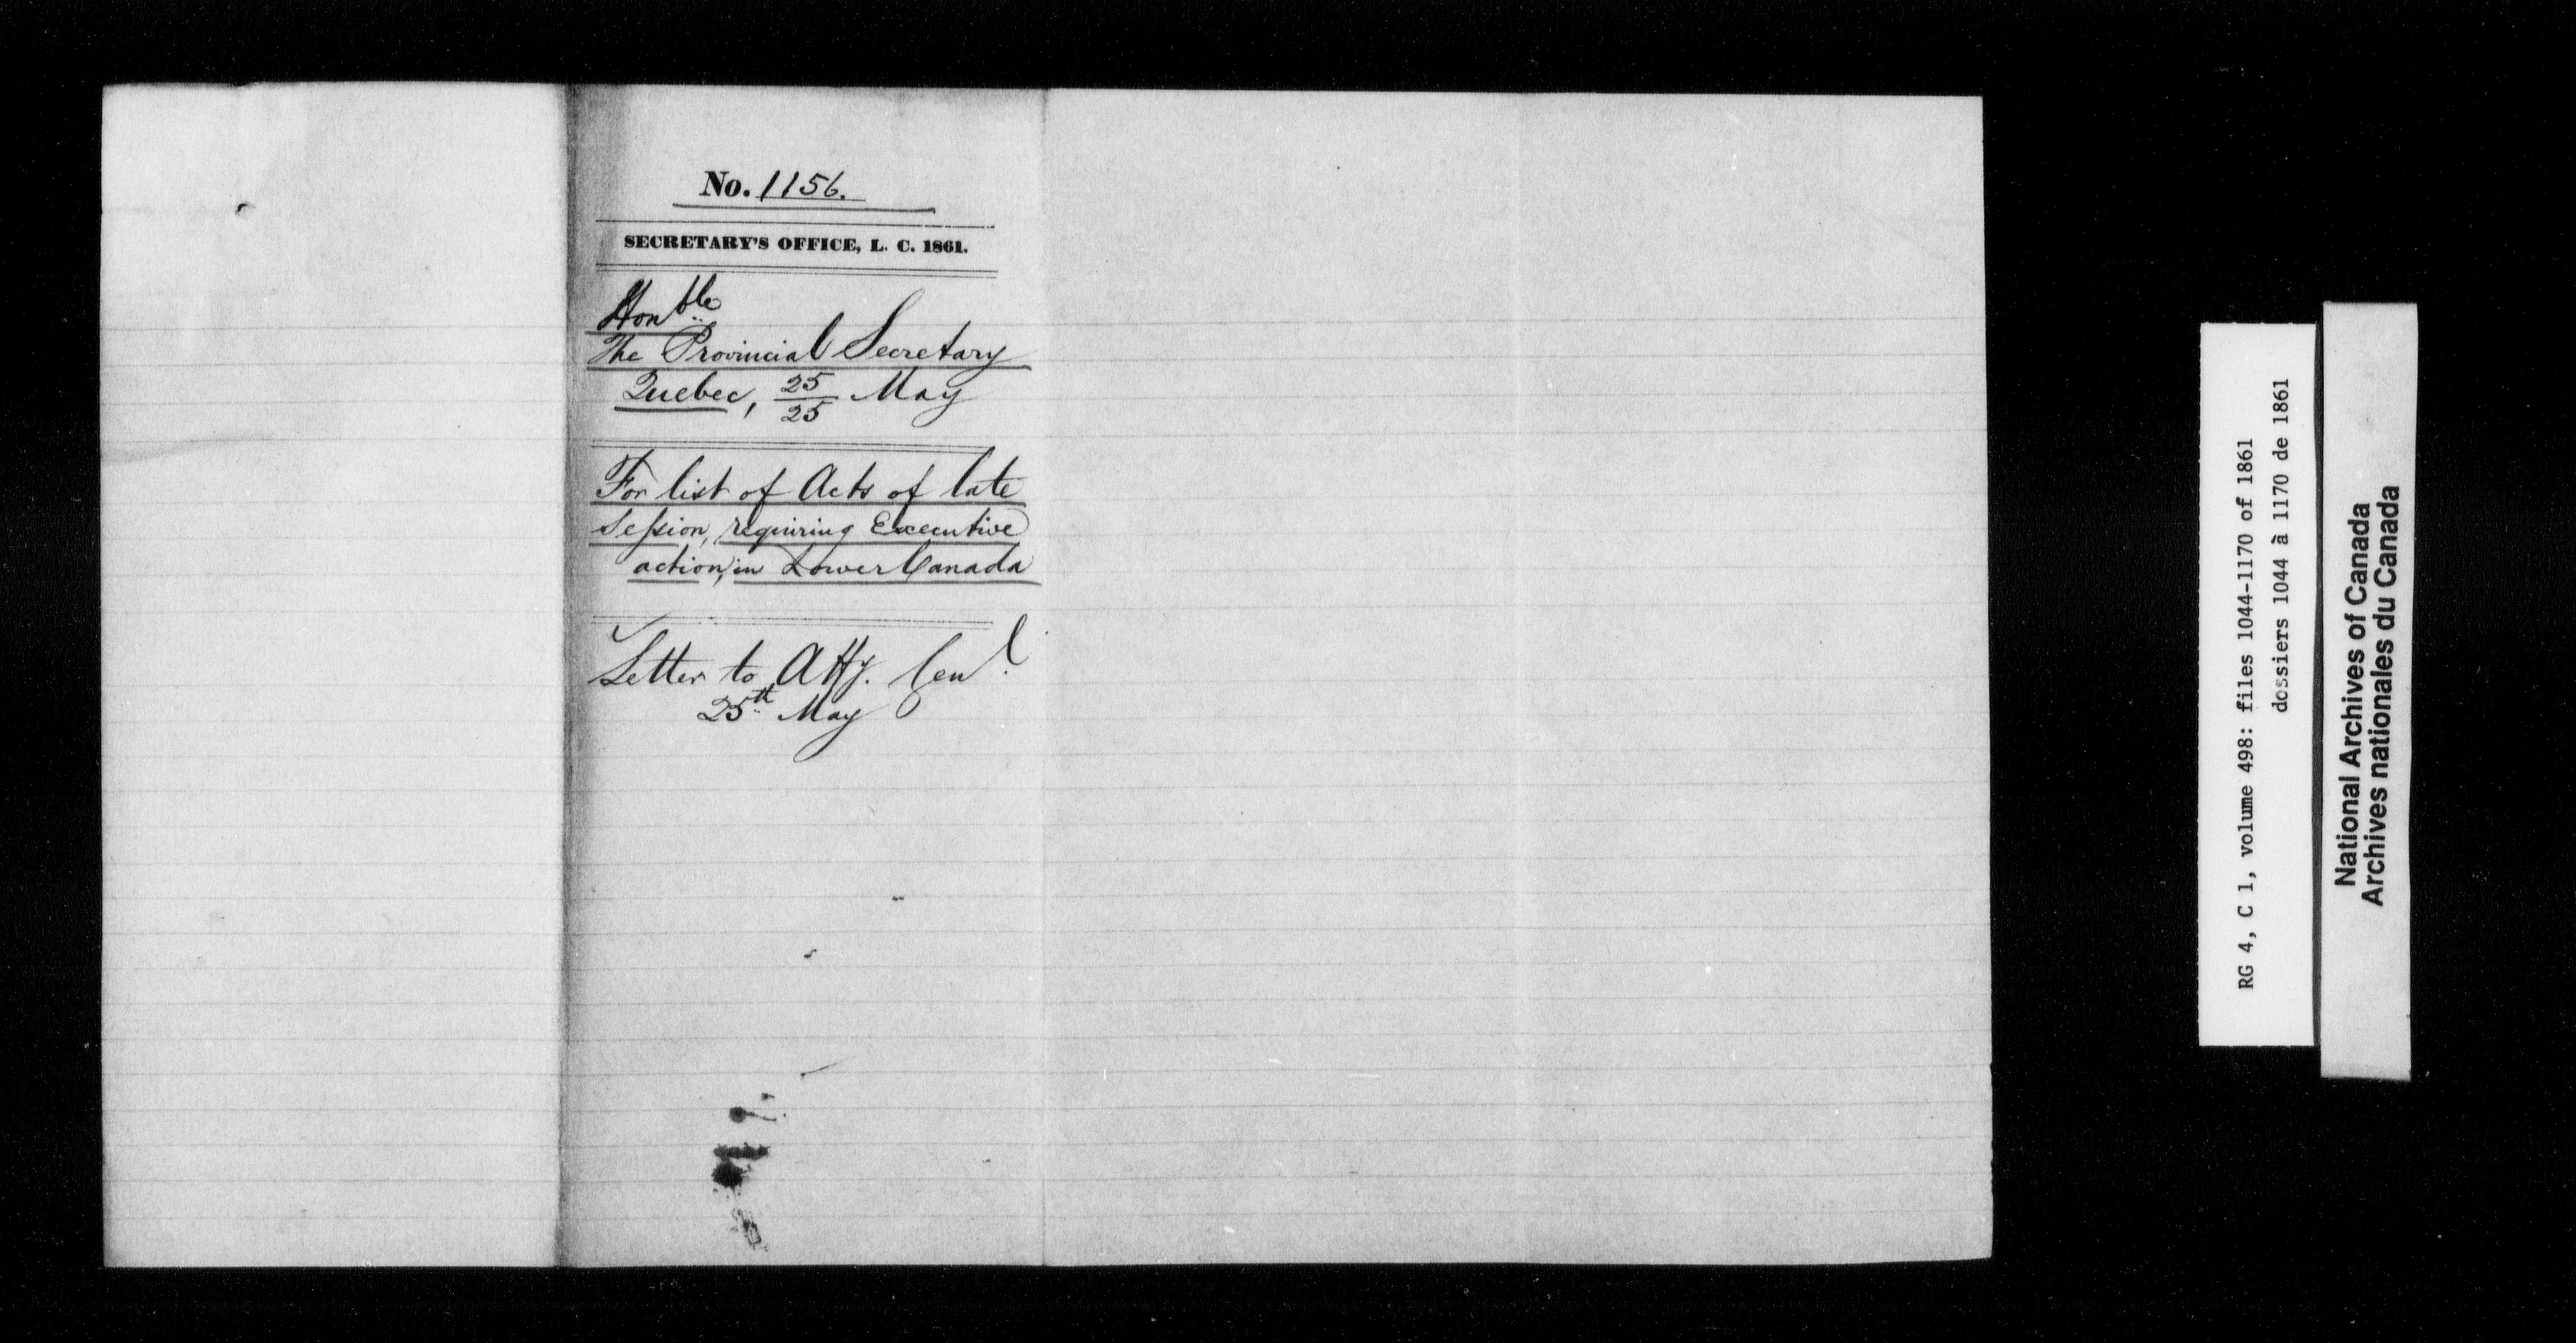 No. 1156.
SECRETARY'S OFFICE, L. C. 1861.
Honble
The Provincial Secretary
Quebec, 25/25 May
For list of Acts of late
Session, requiring Executive
action, in Lower Canada
Letter to Atty. Genl.
25th May
RG 4, C 1, volume 498: files 1044-1170 of 1861
dossiers 1044 à 1170 de 1861
National Archives of Canada
Archives nationales du Canada